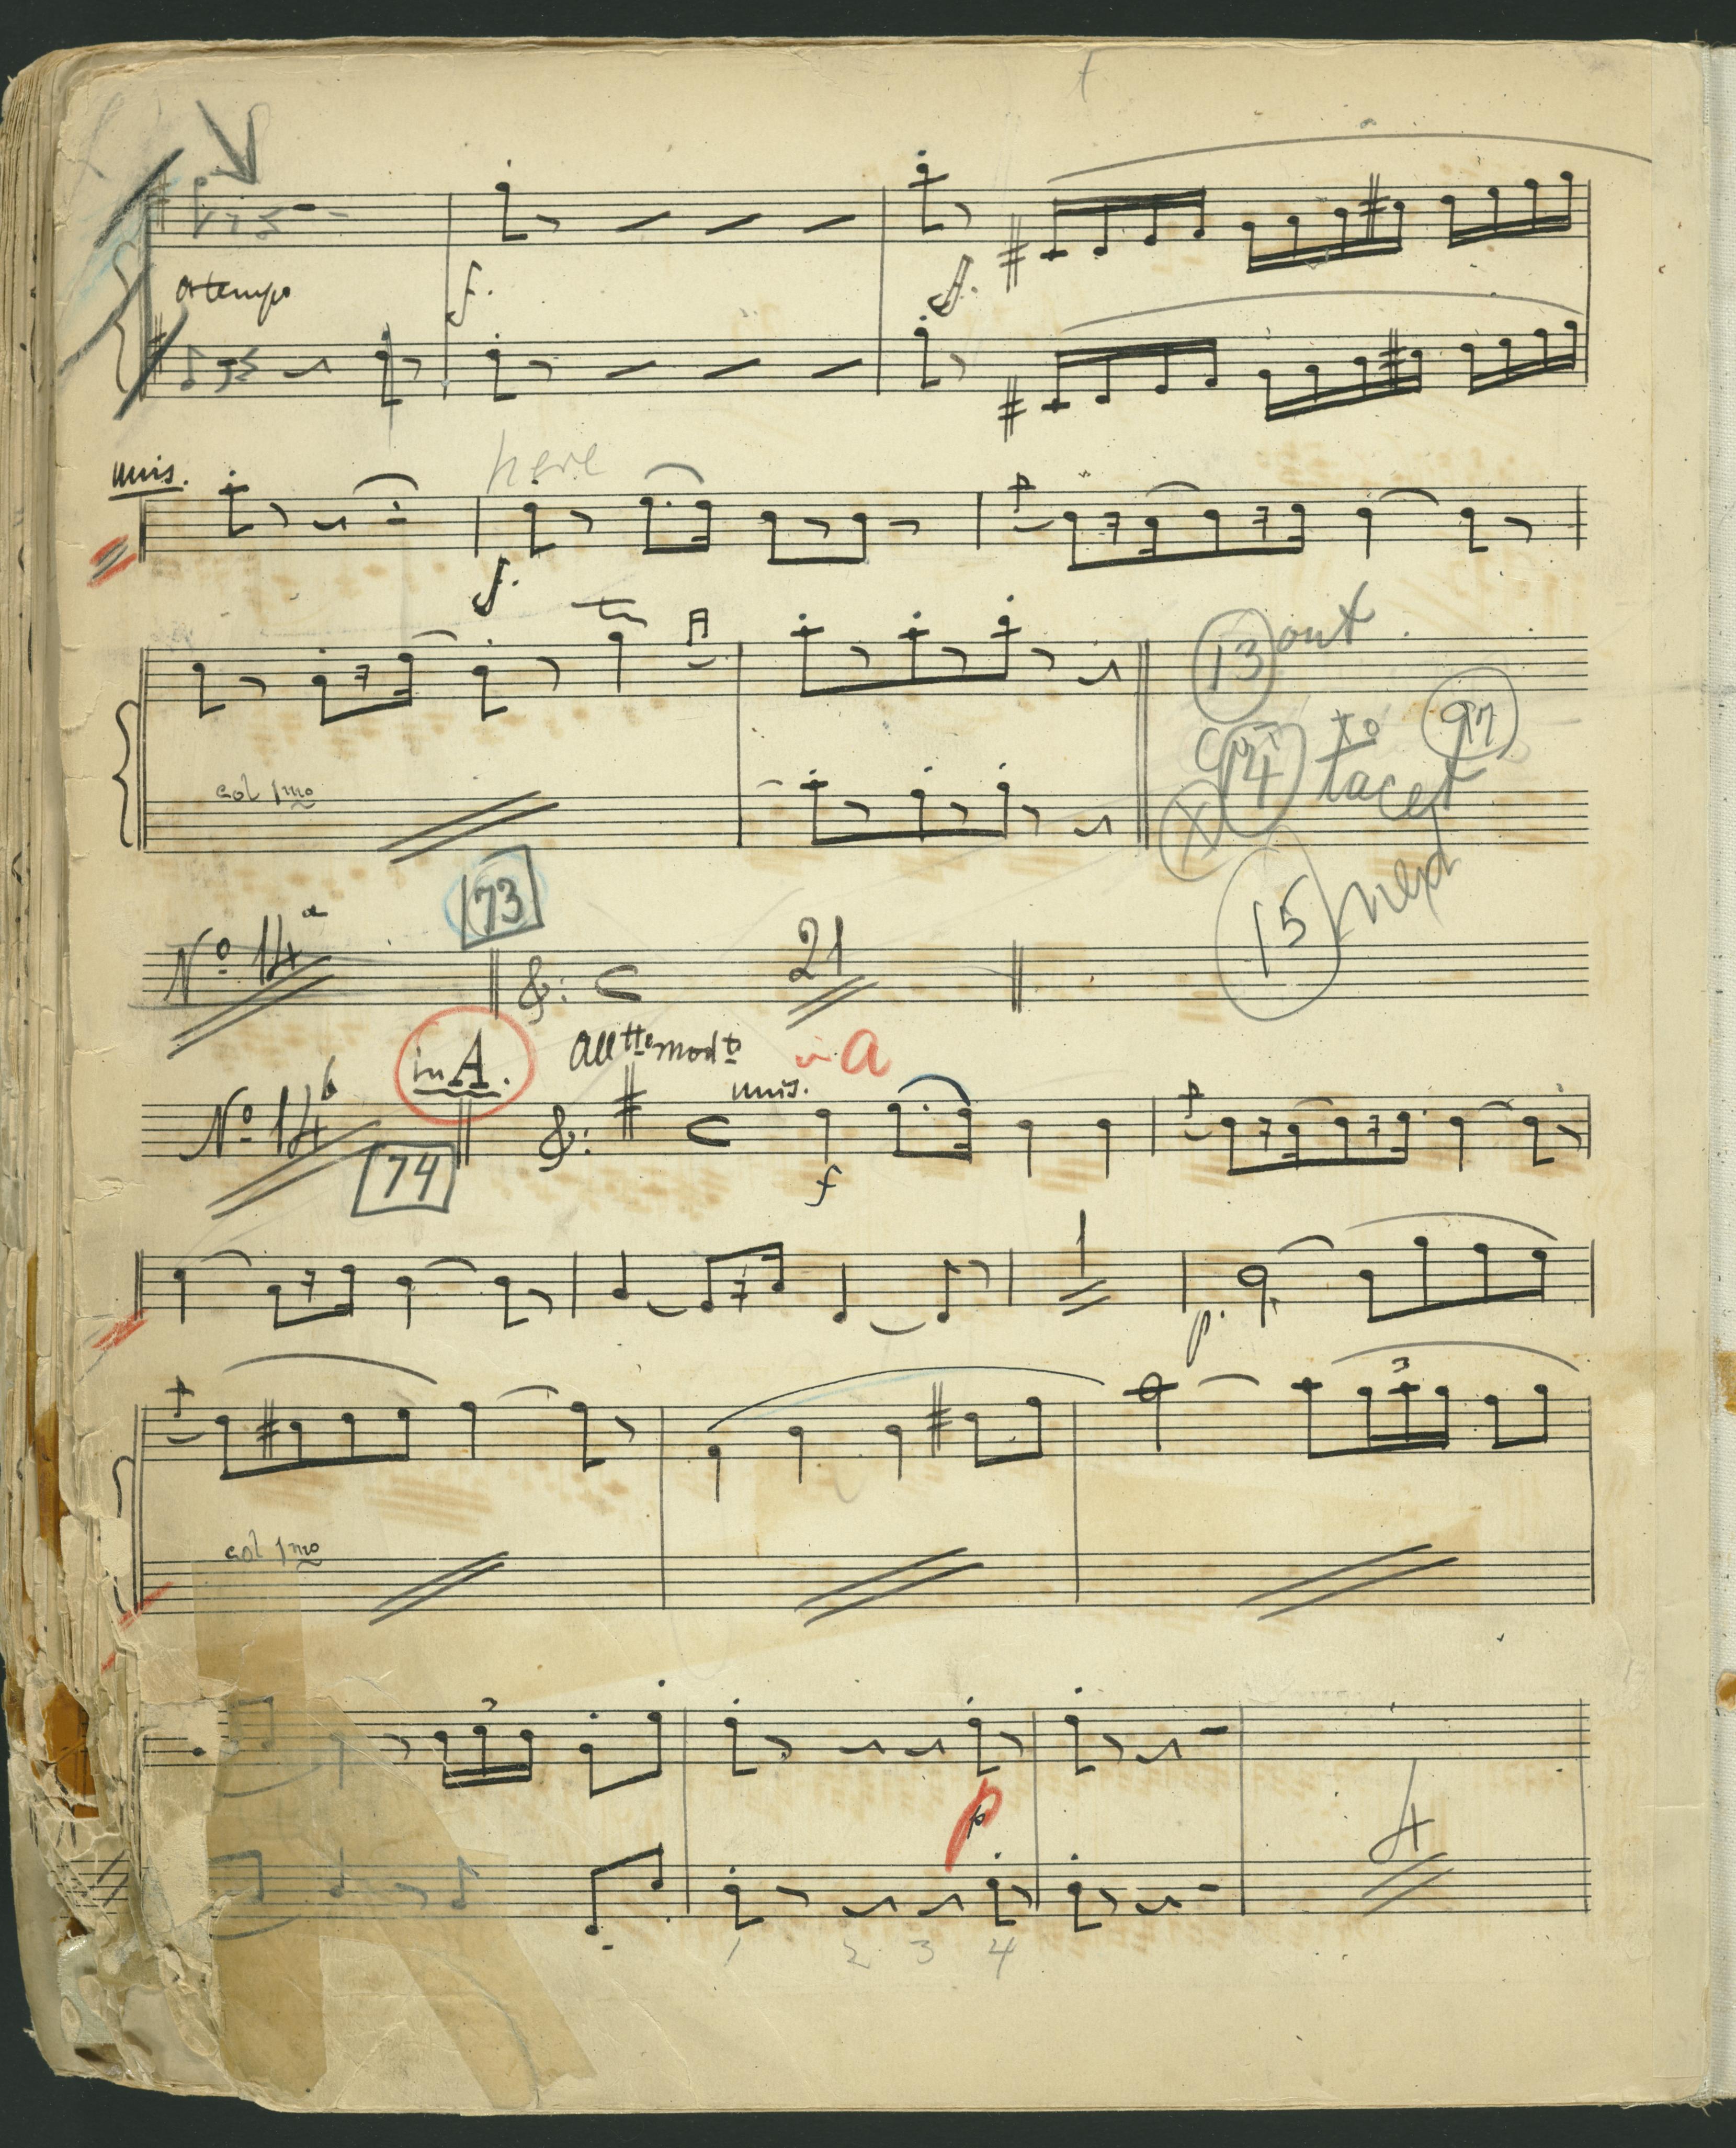 a tempo
f.
f.
here
unis.
f.
tr
13 out
cut to 97
X 14 tacet
col 1mo
15 next
73
No 14a
21
in A.
Alltto modto
in A
No 14b
unis.
f
74
1
p.
3
col 1mo
3
p
4
1 2 3 4